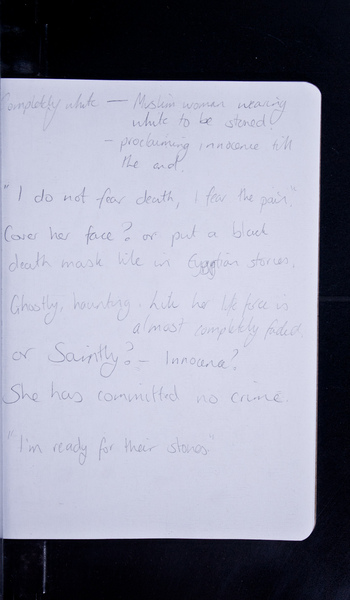 Completely white — Muslim woman wearing
white to be stoned?
- proclaiming innocence till
the end.
"I do not fear death, I fear the pain."
Cover her face? or put a black
death mask like in Egyptian stories.
Ghostly, haunting, like her life force is
almost completely faded.
or Saintly? – Innocence?
She has committed no crime.
"I'm ready for their stones"